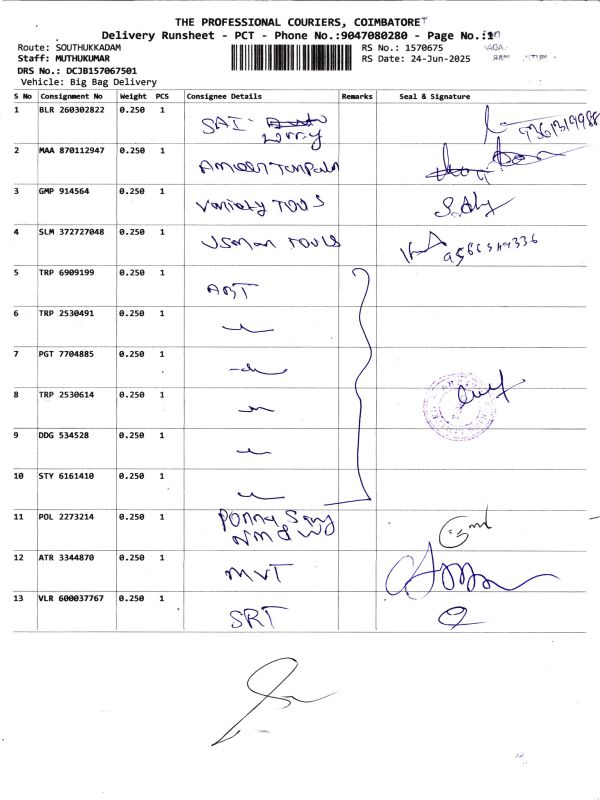 THE PROFESSIONAL COURIERS, COIMBATORE
Delivery Runsheet - PCT - Phone No.:9047080280 - Page No.:
Route: SOUTHUKKADAM
RS No.: 1570675
Staff: MUTHUKUMAR
RS Date: 24-Jun-2025
DRS No.: DCJB157067501
Vehicle: Big Bag Delivery
S No Consignment No Weight PCS Consignee Details Remarks Seal & Signature
1 BLR 260302822 0.250 1 SAI Lorry
2 MAA 870112947 0.250 1
3 GMP 914564 0.250 1 Variety TOOLS
4 SLM 372727048 0.250 1 USMAN TOOLS
5 TRP 6909199 0.250 1 ABT
6 TRP 2530491 0.250 1
7 PGT 7704885 0.250 1
8 TRP 2530614 0.250 1
9 DDG 534528 0.250 1
10 STY 6161410 0.250 1
11 POL 2273214 0.250 1
12 ATR 3344870 0.250 1 MVT
13 VLR 600037767 0.250 1 SRT